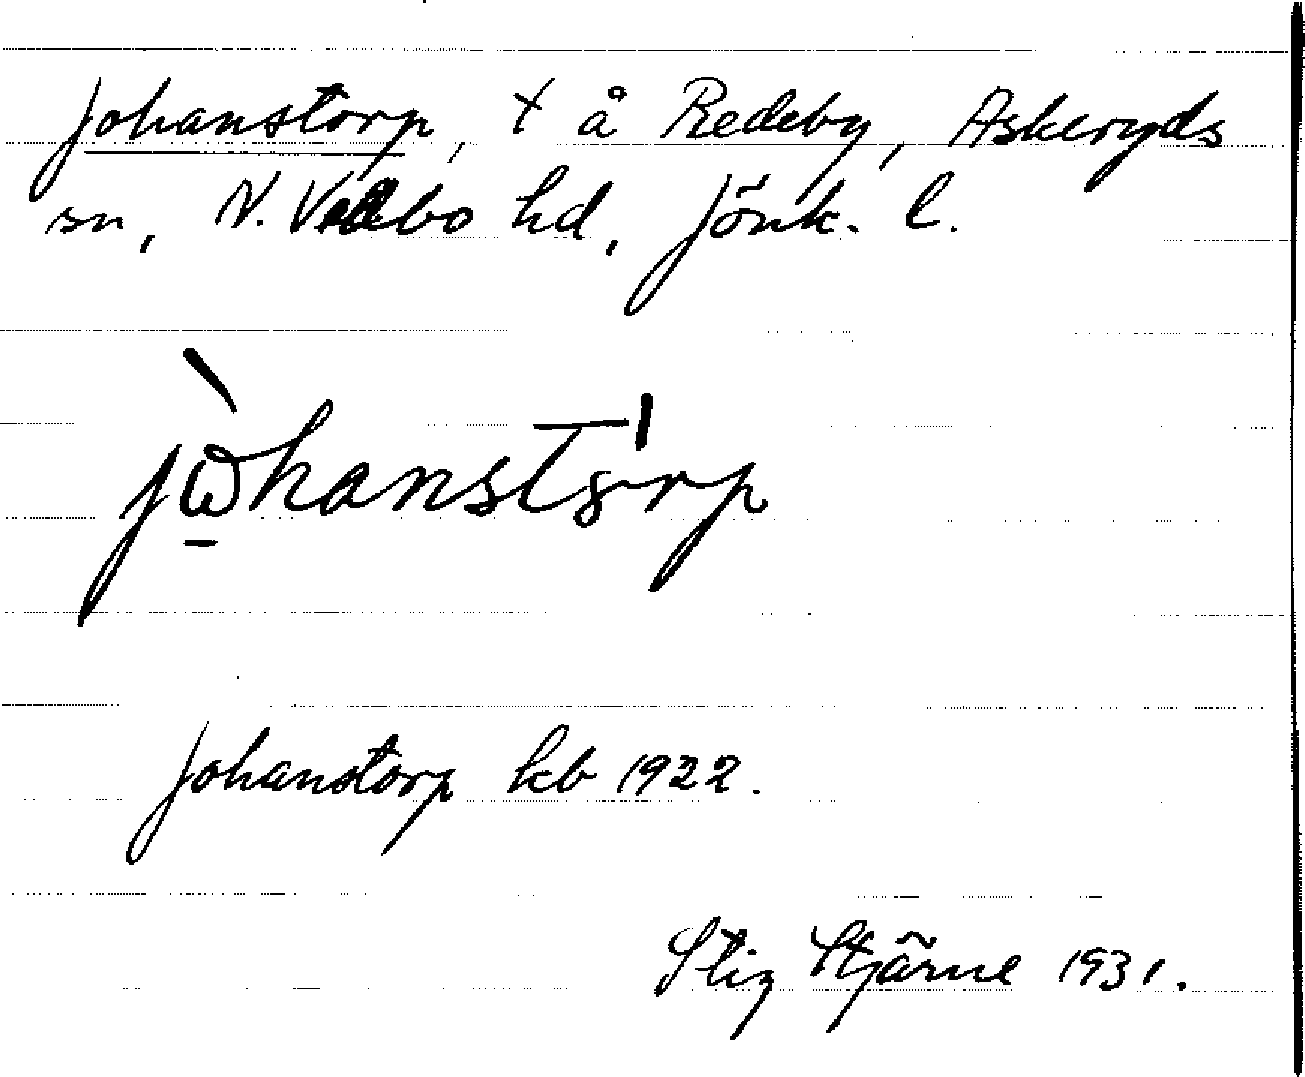 Johanstorp, t å Redeby, Askeryds
sn, N. Vedbo hd, Jönk. l.
jὼhanstȣrp
Johanstorp kb 1922.
Stig Stjärne 1931.